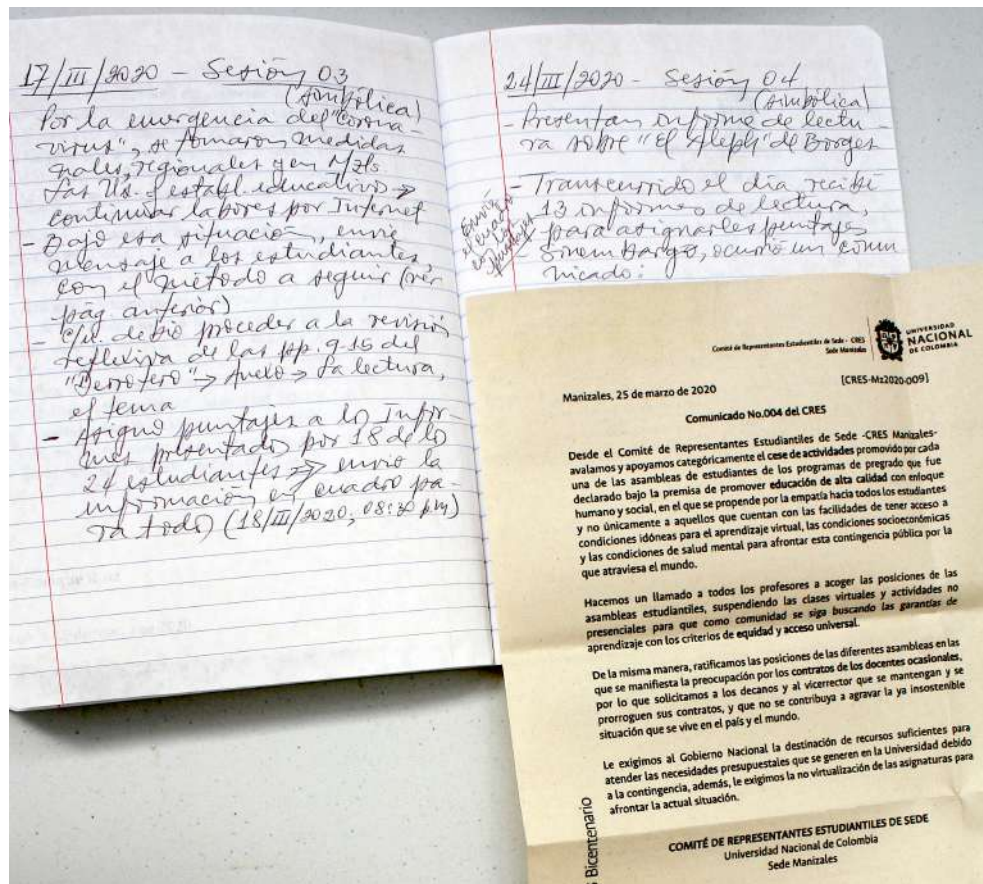 17/III/2020 - Sesión 03
(simbólica)
Por la emergencia del "corona-
virus", se tomaron medidas
nales, regionales y en Mzls
Las Us. y establ. educativos →
continuar labores por Internet
- Bajo esa situación, envié
mensaje a los estudiantes,
con el método a seguir (ver
pág. anterior)
- c/u. debió proceder a la revisión
reflexiva de las pp. 9-15 del
"Derrotero" → Anexo → La lectura,
el tema
- Asignó puntajes a lo Infor-
mes presentado por 18 de lo
24 estudiantes → envio la
información en cuadro pa-
ra todo) (18/III/2020; 08:30 pm)
24/III/2020 - Sesión 04
(simbólica)
- Presentan informe de lectu-
ra sobre "El Aleph" de Borges
- Transcurrido el día, recibí
13 informes de lectura,
para asignarles puntajes
- Sin embargo, ocurrió un comu-
nicado:
Envié
el cuadro
con los
puntajes
Comité de Representantes Estudiantiles de Sede - CRES
Sede Manizales
UNIVERSIDAD
NACIONAL
DE COLOMBIA
[CRES-Mz2020-009]
Manizales, 25 de marzo de 2020
Comunicado No.004 del CRES
Desde el Comité de Representantes Estudiantiles de Sede -CRES Manizales-
avalamos y apoyamos categóricamente el cese de actividades promovido por cada
una de las asambleas de estudiantes de los programas de pregrado que fue
declarado bajo la premisa de promover educación de alta calidad con enfoque
humano y social, en el que se propende por la empatía hacia todos los estudiantes
y no únicamente a aquellos que cuentan con las facilidades de tener acceso a
condiciones idóneas para el aprendizaje virtual, las condiciones socioeconómicas
y las condiciones de salud mental para afrontar esta contingencia pública por la
que atraviesa el mundo.
Hacemos un llamado a todos los profesores a acoger las posiciones de las
asambleas estudiantiles, suspendiendo las clases virtuales y actividades no
presenciales para que como comunidad se siga buscando las garantías de
aprendizaje con los criterios de equidad y acceso universal.
De la misma manera, ratificamos las posiciones de las diferentes asambleas en las
que se manifiesta la preocupación por los contratos de los docentes ocasionales,
por lo que solicitamos a los decanos y al vicerrector que se mantengan y se
prorroguen sus contratos, y que no se contribuya a agravar la ya insostenible
situación que se vive en el país y el mundo.
Le exigimos al Gobierno Nacional la destinación de recursos suficientes para
atender las necesidades presupuestales que se generen en la Universidad debido
a la contingencia, además, le exigimos la no virtualización de las asignaturas para
afrontar la actual situación.
COMITÉ DE REPRESENTANTES ESTUDIANTILES DE SEDE
Universidad Nacional de Colombia
Sede Manizales
Bicentenario